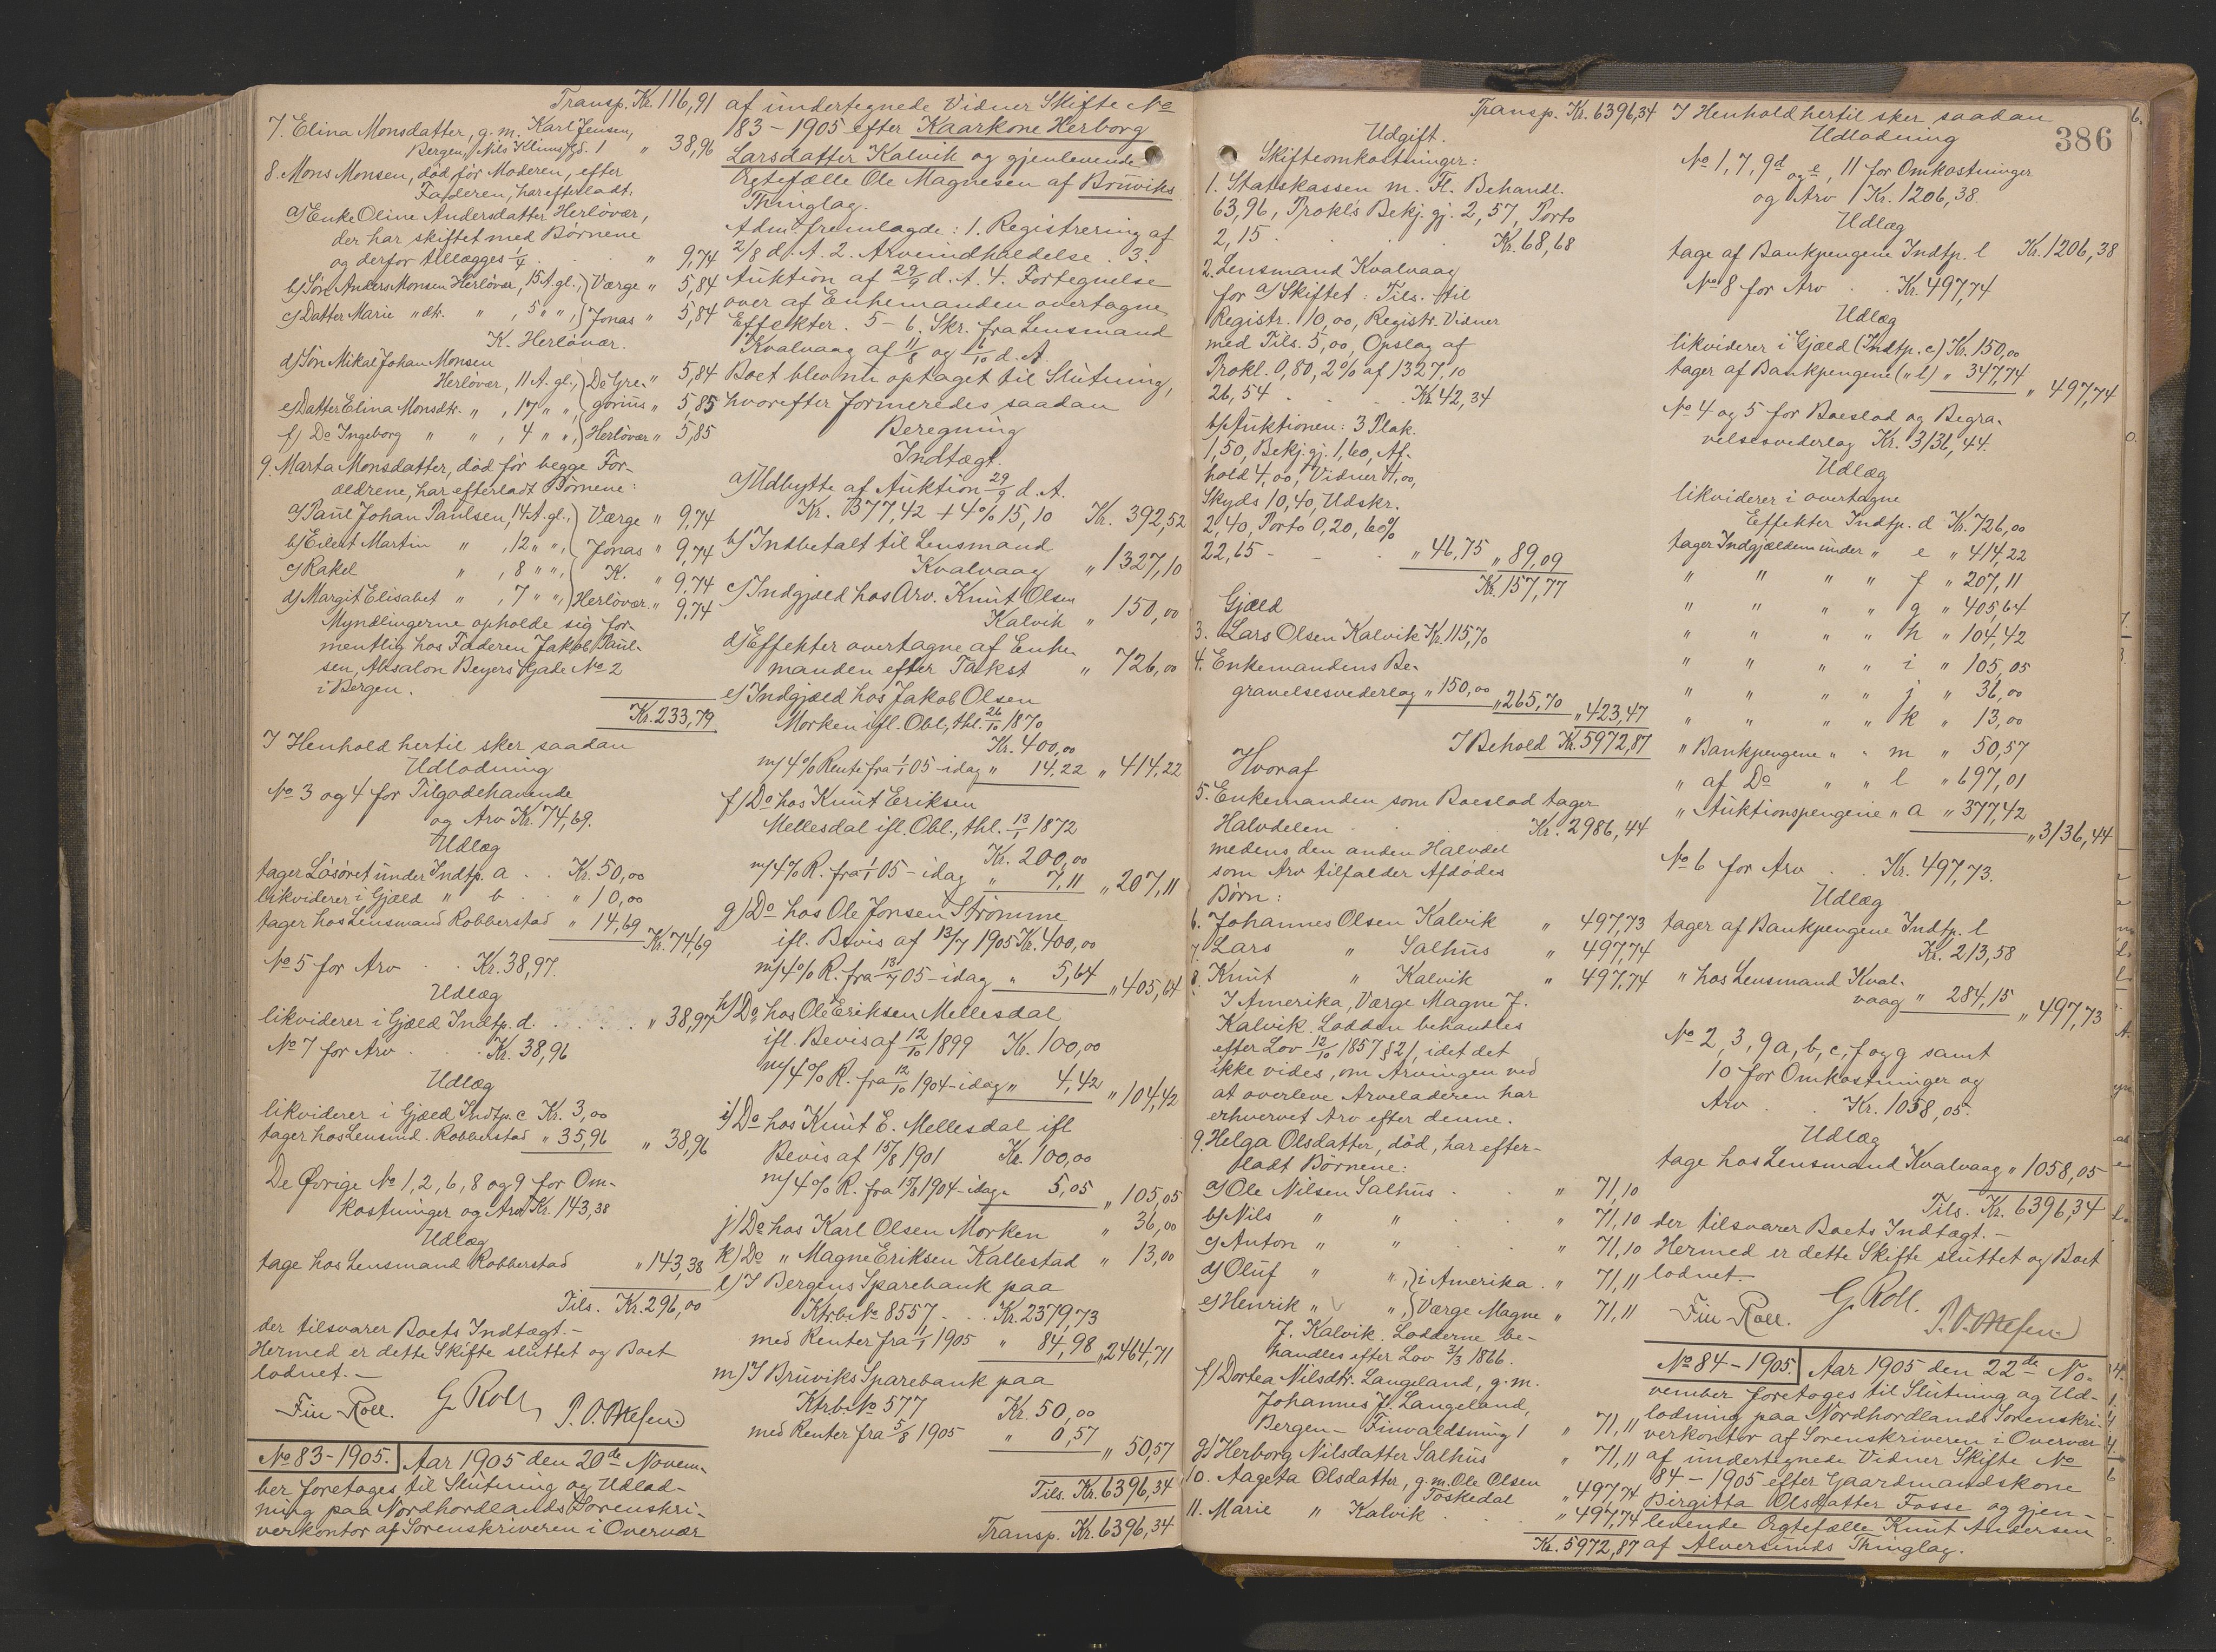 Transp. Kr. 116,91
7. Elina Monsdatter, g.m. Karl Jensen,
Bergen, Nils Klims Gd. 1 " 38,96
8. Mons Monsen, død før Moderen, efter
Faderen, har efterladt:
a) Enke Oline Andersdatter Herløvær,
der har skiftet med Børnene
og derfor tillægges 1/4 . . " 9,74
b) Søn Anders Monsen Herløvær, 15 A. gl., } Værge " 5,84
c) Datter Marie " dtr. " , 5 " ", } Jonas " 5,84
K. Herløvær.
d) Søn Mikal Johan Monsen
Herløvær, 11 A. gl., } De Gre- " 5,84
e) Datter Elina Monsdtr. " , 17 " ", } gorius " 5,85
f) Do Ingeborg " " , 4 " ", } Herløvær " 5,85
9. Marta Monsdatter, død før begge For-
ældrene, har efterladt Børnene:
a) Paul Johan Paulsen, 14 A. gl., } Værge " 9,74
b) Eilert Martin " , 12 " ", } Jonas " 9,74
c) Rakel " , 8 " ", } K. " 9,74
d) Margit Elisabet " , 7 " ", } Herløvær. " 9,74
Myndlingerne opholde sig for-
mentlig hos Faderen Jakob Paul-
sen, Absalon Beyers Gade No 2
i Bergen.
Kr. 233,79
I Henhold hertil sker saadan
Udlodning
No 3 og 4 for Tilgodehavende
og Arv Kr. 74,69.
Udlæg
tager Løsøret under Indtp. a . . Kr. 50,00
likviderer i Gjæld " b . . " 10,00
tager hos Lensmand Robberstad " 14,69
Kr. 74,69
No 5 for Arv . . Kr. 38,97.
Udlæg
likviderer i Gjæld Indtp. d. . . . . " 38,97
No 7 for Arv . . Kr. 38,96
Udlæg
likviderer i Gjæld Indtp. c Kr. 3,00
tager hos Lensmd. Robberstad " 35,96 " 38,96
De Øvrige No 1, 2, 6, 8 og 9 for Om-
kostninger og Arv Kr. 143,38
Udlæg
tage hos Lensmand Robberstad " 143,38
Tils. Kr. 296,00
der tilsvarer Boets Indtægt. -
Hermed er dette Skifte sluttet og Boet
lodnet. -
Fin Roll. G. Roll
No 83 - 1905. Aar 1905 den 20de Novem-
ber foretoges til Slutning og Udlod-
ning paa Nordhordlands Sorenskri-
verkontor af Sorenskriveren i Overvær
af undertegnede Vidner Skifte No
183 - 1905 efter Kaarkone Herborg
Larsdatter Kalvik og gjenlevende
Ægtefælle Ole Magnesen af Bruviks
Thinglag.
Adm. fremlagde: 1. Registrering af
2/8 d. A. 2. Arveindkaldelse. 3.
Auktion af 29/9 d. A. 4. Fortegnelse
over af Enkemanden overtagne
Effekter. 5 - 6. Skr. fra Lensmand
Kvalvaag af 11/8 og 6/10 d. A.
Boet blev nu optaget til Slutning,
hvorefter formeredes saadan
Beregning
Indtægt.
a) Udbytte af Auktion 29/9 d. A.
Kr. 377,42 + 4% 15,10 Kr. 392,52
b) Indbetalt til Lensmand
Kvalvaag " 1327,10
c) Indgjæld hos Arv. Knut Olsen
Kalvik " 150,00
d) Effekter overtagne af Enke-
manden efter Takst " 726,00
e) Indgjæld hos Jakob Olsen
Morken ifl. Obl., thl. 26/10 1870
Kr. 400,00
m/ 4% Rente fra 1/1 05 - idag " 14,22 " 414,22
f) Do hos Knut Eriksen
Mellesdal ifl. Obl., thl. 13/1 1872
Kr. 200,00
m/ 4% R. fra 1/1 05 - idag " 7,11 " 207,11
g) Do hos Ole Jonsen Strømme
ifl. Bevis af 13/7 1905 Kr. 400,00
m/ 4% R. fra 13/7 05 - idag " 5,64 " 405,64
h) Do hos Ole Eriksen Mellesdal
ifl. Bevis af 12/10 1899 Kr. 100,00
m/ 4% R. fra 12/10 1904 - idag " 4,42 " 104,42
i) Do hos Knut E. Mellesdal ifl
Bevis af 15/8 1901 Kr. 100,00
m/ 4% R. fra 15/8 1904 - idag " 5,05 " 105,05
j) Do hos Karl Olsen Morken " 36,00
k) Do " Magne Eriksen Kallestad " 13,00
l) I Bergens Sparebank paa
Ktrb. No 8557 . . Kr. 2379,73
med Renter fra 1/1 1905 " 84,98 " 2464,71
m) I Bruviks Sparebank paa
Ktrb. No 577 Kr. 50,00
med Renter fra 5/8 1905 " 0,57
" 50,57
Tils. Kr. 6396,34
Transp. Kr. 6396,34
Transp. Kr. 6396,34
Udgift.
Skifteomkostninger:
1. Statskassen m. Fl. Behandl.
63,96, Prokl's Bekj. gj. 2,57, Porto
2,15 . . . . Kr. 68,68
2. Lensmand Kvalvaag
for a) Skiftet: Tils. til
Registr. 10,00, Registr. Vidner
med Tils. 5,00, Opslag af
Prokl. 0,80, 2% af 1327,10
26,54 . . . Kr. 42,34
b) Auktionen: 3 Plak.
1,50, Bekj. gj. 1,60, Af-
hold 4,00, Vidner 4,00,
Skyds 10,40, Udskr.
2,40, Porto 0,20, 60%
22,65 - . . " 46,75 " 89,09
Kr. 157,77
Gjæld
3. Lars Olsen Kalvik Kr. 115,70
4. Enkemandens Be-
gravelsesvederlag " 150,00 " 265,70 " 423,47
I Behold Kr. 5972,87
Hvoraf
5. Enkemanden som Boeslod tager
Halvdelen . . Kr. 2986,44
medens den anden Halvdel
som Arv tilfalder Afdødes
Børn:
6. Johannes Olsen Kalvik " 497,73
7. Lars " Salhus " 497,74
8. Knut " Kalvik " 497,74
I Amerika, Værge Magne J.
Kalvik. Lodden behandles
efter Lov 12/10 1857 § 21, idet det
ikke vides, om Arvingen ved
at overleve Arveladeren har
erhvervet Arv efter denne.
9. Helga Olsdatter, død, har efter-
ladt Børnene:
a) Ole Nilsen Salhus . . " 71,10
b) Nils " " . . " 71,10
c) Anton " " . . " 71,10
d) Oluf " ", } i Amerika. " 71,11
e) Henrik " ", } Værge Magne " 71,11
J. Kalvik. Lodderne be-
handles efter Lov 3/3 1866.
f) Dortea Nilsdtr. Langeland, g.m.
Johannes J. Langeland,
Bergen - Finvaldsmug 1 " 71,11
g) Herborg Nilsdatter Salhus " 71,11
10. Aageta Olsdatter, g.m. Ole Olsen
Toskedal " 497,74
11. Marie " Kalvik . . " 497,74
Kr. 5972,87
386
I Henhold hertil sker saadan
Udlodning
No 1, 7, 9d og e, 11 for Omkostninger
og Arv Kr. 1206,38.
Udlæg
tage af Bankpengene Indtp. l Kr. 1206,38
No 8 for Arv . . Kr. 497,74
Udlæg
likviderer i Gjæld (Indtp. c) Kr. 150,00
tager af Bankpengene (" l) " 347,74 " 497,74
No 4 og 5 for Boeslod og Begra-
velsesvederlag Kr. 3136,44.
Udlæg
likviderer i overtagne
Effekter Indtp. d Kr. 726,00
tager Indgjælden under " e " 414,22
" " " " f " 207,11
" " " " g " 405,64
" " " " h " 104,42
" " " " i " 105,05
" " " " j " 36,00
" " " " k " 13,00
" Bankpengene " " m " 50,57
" af Do " " l " 697,01
" Auktionspengene " a " 377,42
" 3136,44
No 6 for Arv . . Kr. 497,73.
Udlæg
tager af Bankpengene Indtp. l
Kr. 213,58
" hos Lensmand Kval-
vaag " 284,15 " 497,73
No 2, 3, 9a, b, c, f og g samt
10 for Omkostninger og
Arv . . Kr. 1058,05.
Udlæg
tage hos Lensmand Kvalvaag " 1058,05
Tils. Kr. 6396,34
der tilsvarer Boets Indtægt. -
Hermed er dette Skifte sluttet og Boet
lodnet. -
Fin Roll. G. Roll.
No 84 - 1905. Aar 1905 den 22de No-
vember foretoges til Slutning og Ud-
lodning paa Nordhordlands Sorenskri-
verkontor af Sorenskriveren i Overvær
af undertegnede Vidner Skifte No
84 - 1905 efter Gaardmandskone
Birgitta Olsdatter Fosse og gjen-
levende Ægtefælle Knut Andersen
af Alversunds Thinglag.